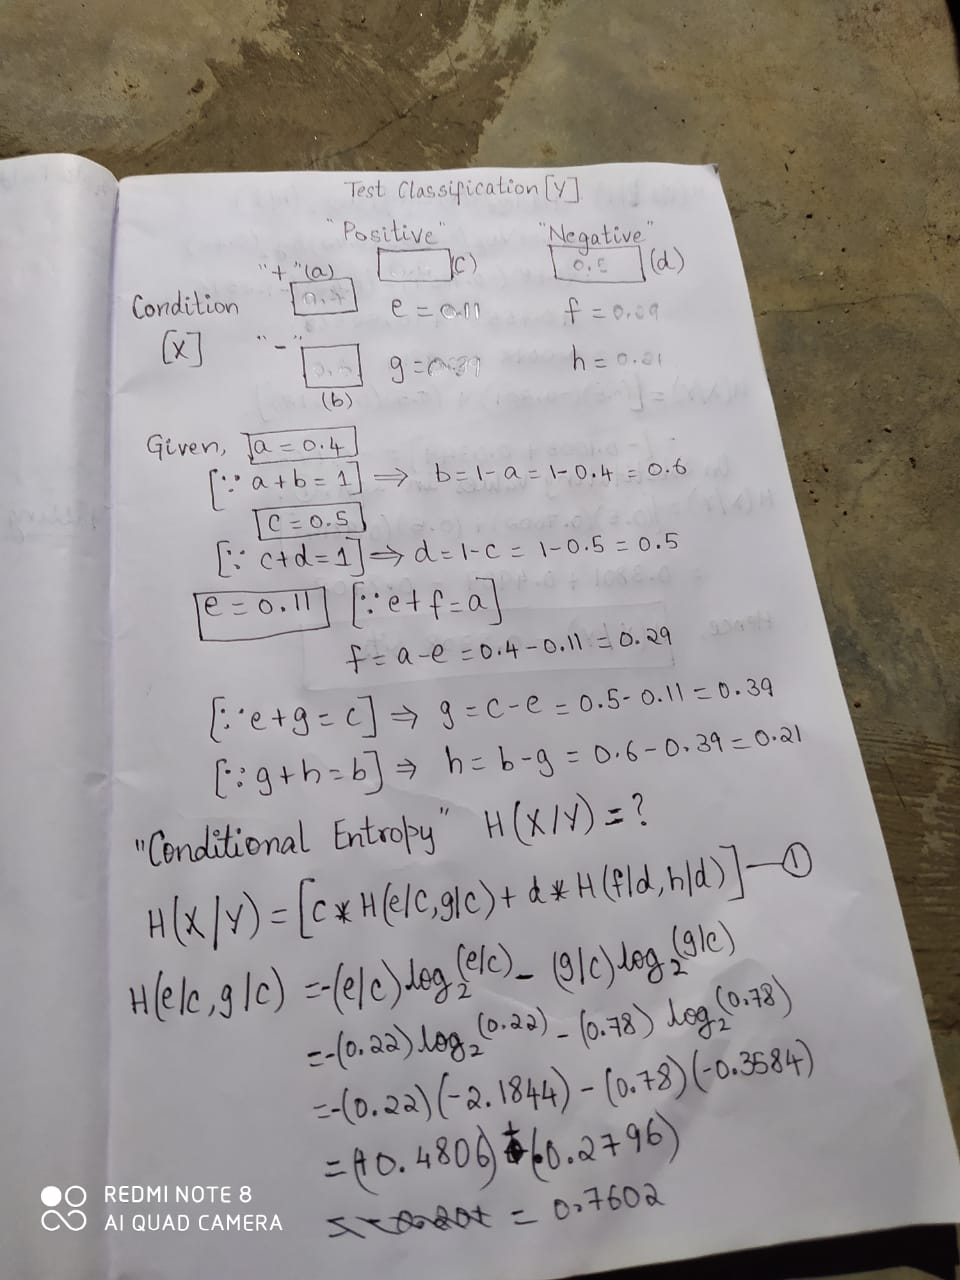 Test Classification [Y]
"Positive" "Negative"
"+" (a) (c) 0.5 (d)
Condition 0.4 e = 0.11 f = 0.29
[X] "-" g = 0.39 h = 0.21
(b)
Given, a = 0.4
[∵ a+b = 1] ⇒ b = 1-a = 1-0.4 = 0.6
c = 0.5
[∵ c+d=1] ⇒ d = 1-c = 1-0.5 = 0.5
e = 0.11 [∵ e+f=a]
f = a-e = 0.4-0.11 = 0.29
[∵ e+g = c] ⇒ g = c-e = 0.5-0.11 = 0.39
[∵ g+h=b] ⇒ h = b-g = 0.6-0.39 = 0.21
"Conditional Entropy" H(X/Y) = ?
H(X/Y) = [c * H(e/c, g/c) + d * H(f/d, h/d)] — ①
H(e/c, g/c) = -(e/c) log₂(e/c) - (g/c) log₂(g/c)
= -(0.22) log₂(0.22) - (0.78) log₂(0.78)
= -(0.22)(-2.1844) - (0.78)(-0.3584)
= (+0.4806) + (0.2796)
= 0.7602
REDMI NOTE 8
AI QUAD CAMERA